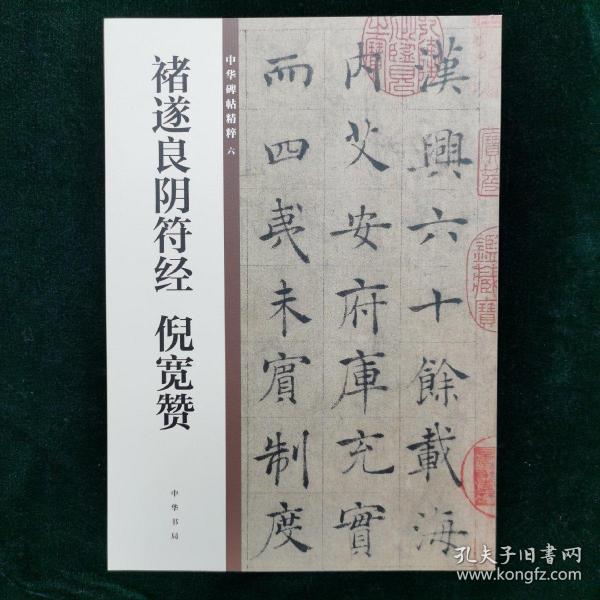 褚遂良阴符经 倪宽赞
中华书局
中华碑帖精粹 六
漢興六十餘載海
内艾安府庫充實
而四夷未賓制度
鑑藏寶
孔夫子旧书网
www.kongfz.com